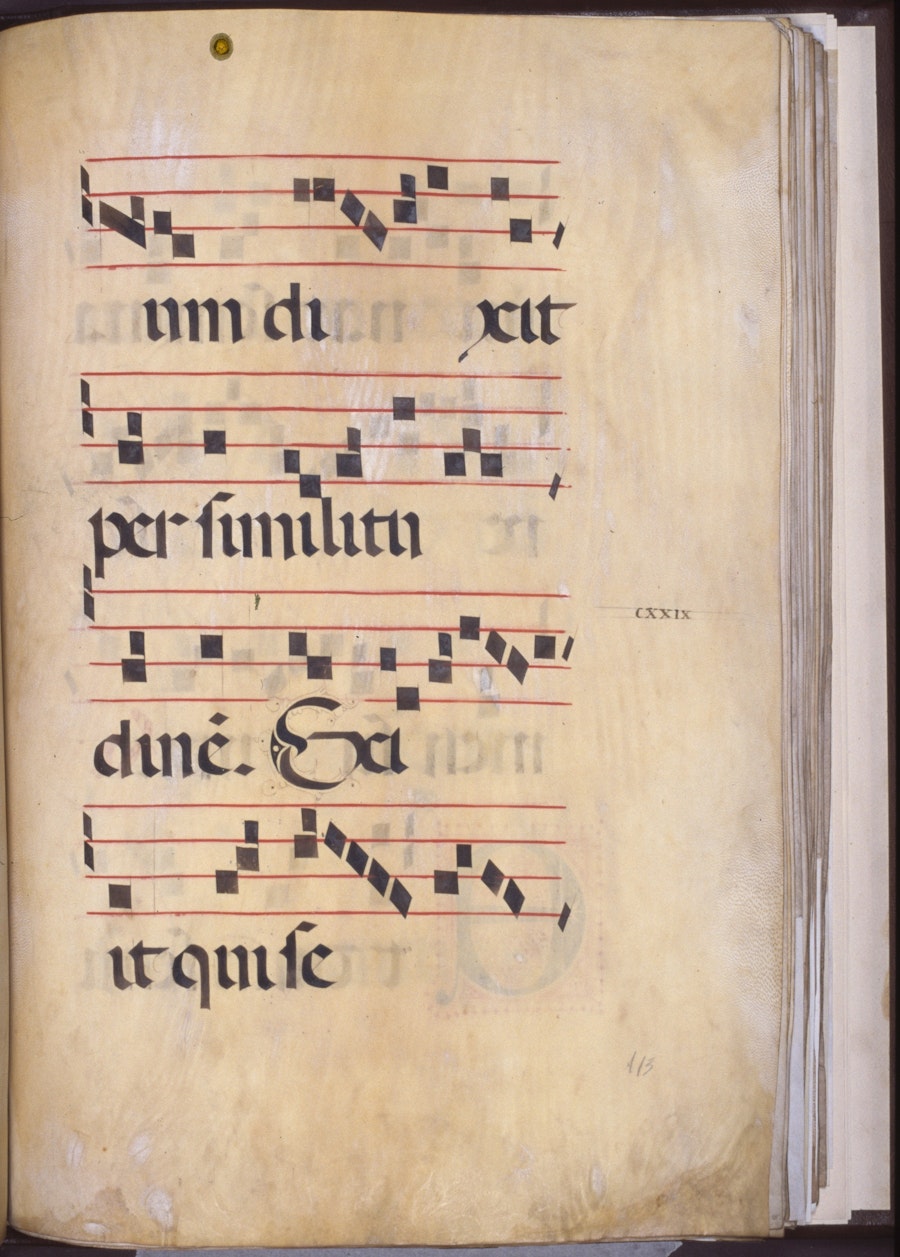 um di xit
per ſimilitu
CXXIX
dinē. Exi
it qui ſe
113